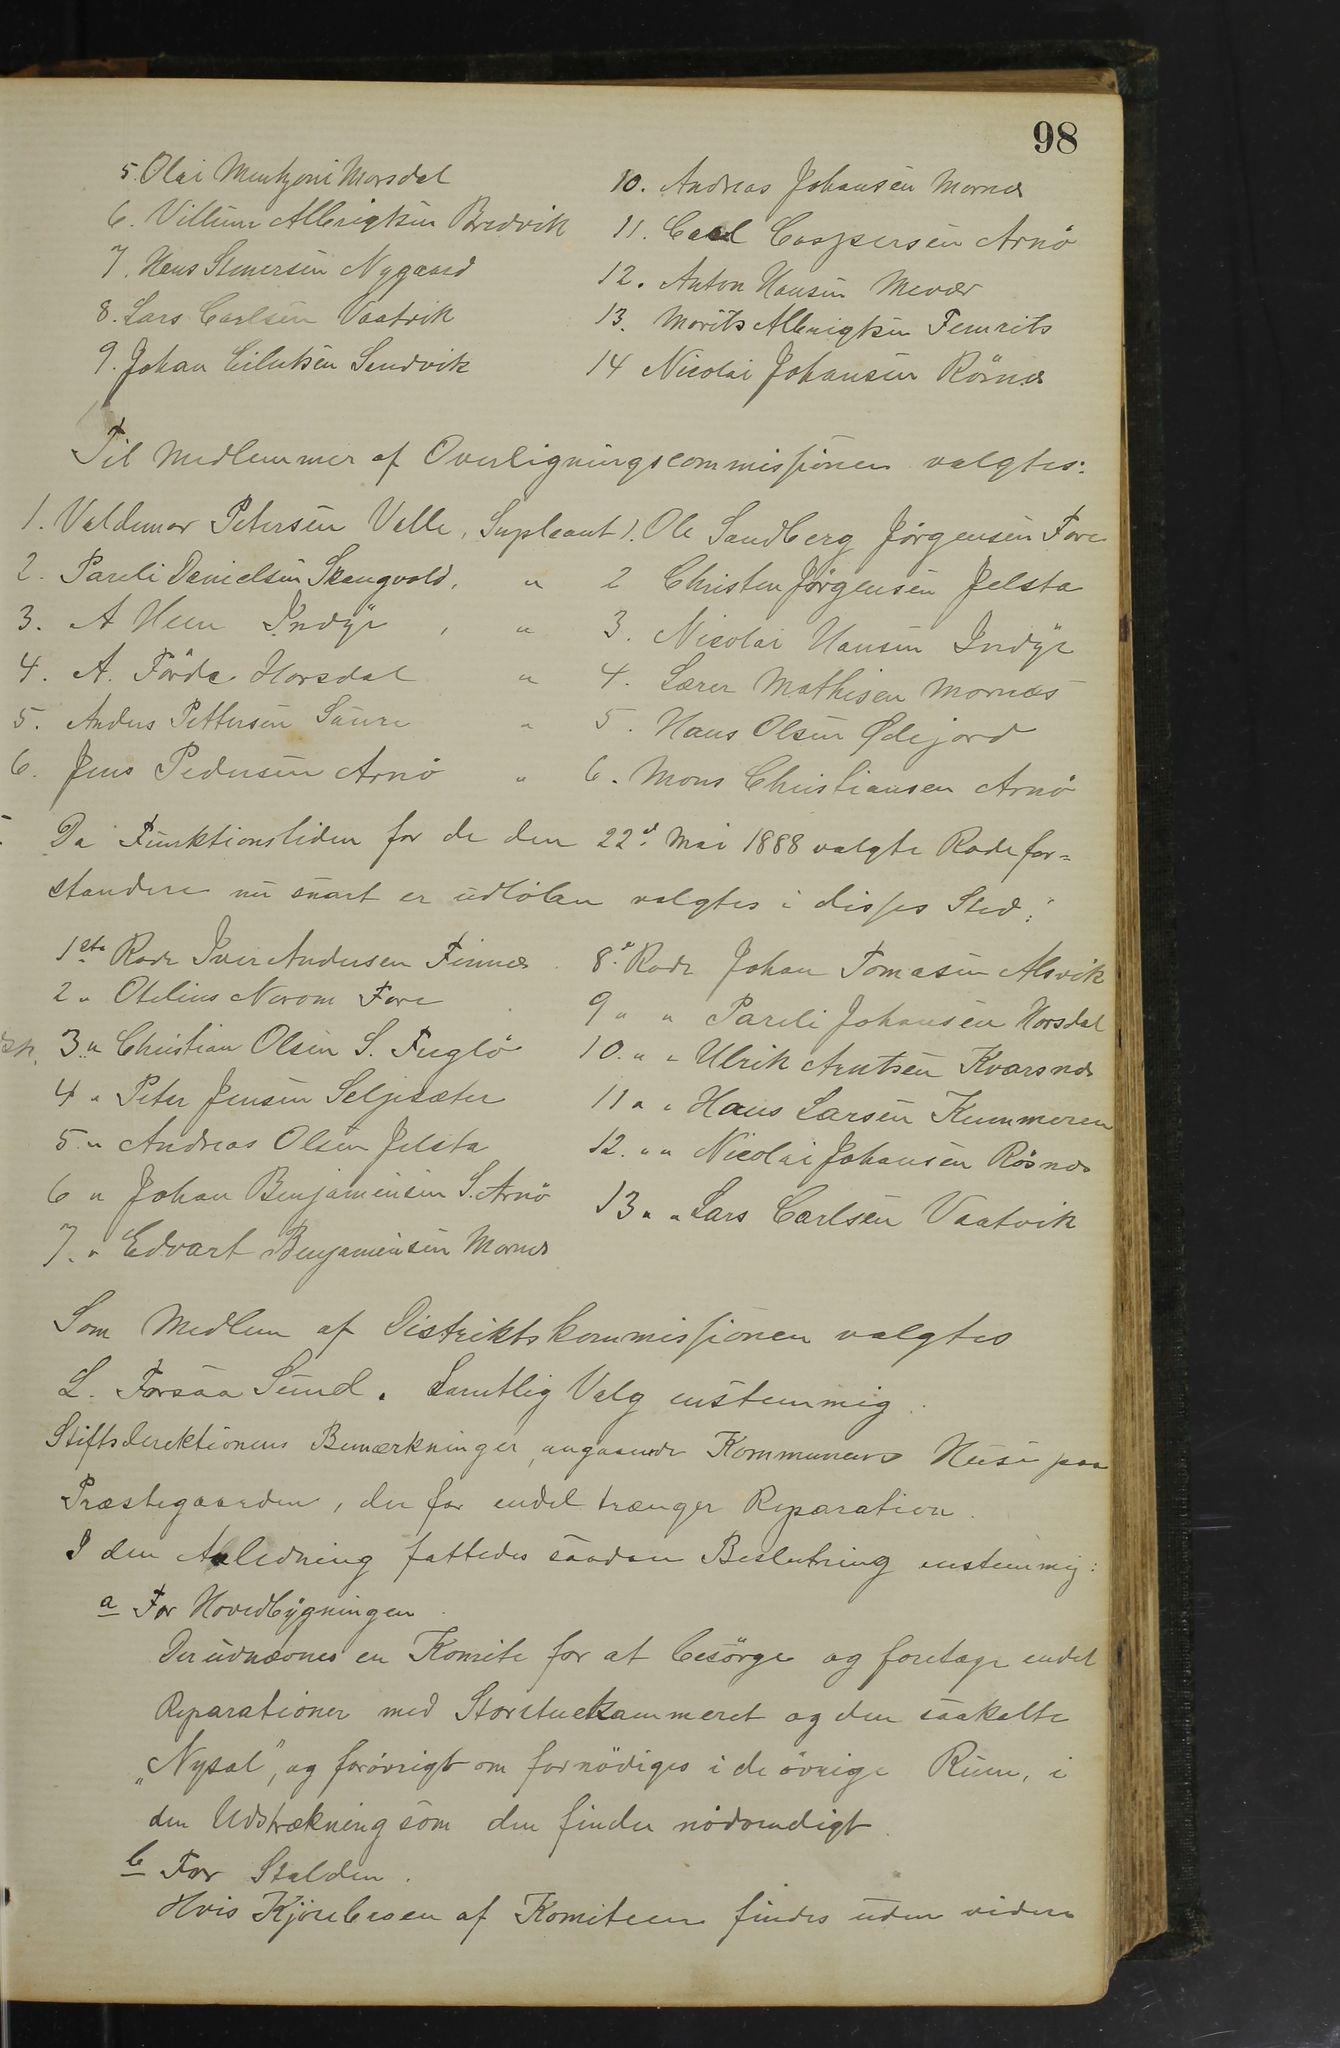 98
5. Olai Mentzoni Morsdal
6. Villum Albrigtsen Bredvik
7. Hans Steuersen Nygaard
8. Lars Carlsen Vaatvik
9. Johan Eiluksen Sandvik
10. Andreas Johansen Mornæs
11. Carl Caspersen Arnö
12. Anton Hansen Mevær
13. Morits Albrigtsen Femrits
14 Nicolai Johansen Rösnæs
Til Medlemmer af Overligningscommissionen valgtes:
1. Valdemar Petersen Valle, Supleant 1. Ole Sandberg Jörgensen Fore
2. Pareli Danielsen Skaugvold, " 2 Christen Jörgensen Jelsta
3. A Heen Indyr, " 3. Nicolai Hansen Indyr
4. A. Förde Horsdal " 4. Lærer Mathisen Mornæs
5. Anders Pettersen Saura " 5. Hans Olsen Ødejord
6. Jens Pedersen Arnö " 6. Mons Christiansen Arnö
Da Funktionstiden for de den 22d Mai 1888 valgte Rodefor=
standere nu snart er udlöben valgtes i disses Sted:
1ste Rode Iver Andersen Finnes
2 " Otelius Norom Fore
3 " Christian Olsen S. Fuglö
4 " Peter Jensen Seljesæter
5 " Andreas Olsen Jelsta
6 " Johan Benjaminsen S. Arnö
7. " Edvart Benjaminsen Mornes
8de Rode Johan Tomasen Alsvik
9 " " Pareli Johansen Horsdal
10. " " Ulrik Arntsen Kvarsnæs
11 " " Hans Larsen Kummeren
12. " " Nicolai Johansen Rösnæs
13 " " Lars Carlsen Vaatvik
Som Medlem af Distriktskommissionen valgtes
L. Forsaa Sund. Samtlig Valg enstemmig.
Stiftsdirektionens Bemærkninger, angaaende Kommunens Huse paa
Præstegaarden, der for endel trænger Reparation.
I den Anledning fattedes saadan Beslutning enstemmig:
a For Hovedbygningen.
Der udnævnes en Komite for at besörge og foretage endel
Reparationer med Storstuekammeret og den saakalte
"Nysal", og forövrigt om fornödiges i de övrige Rum, i
den Udstrækning som den finder nödvendigt.
b For Stalden.
Hvis Kjörebasen af Komiteen findes uden videre